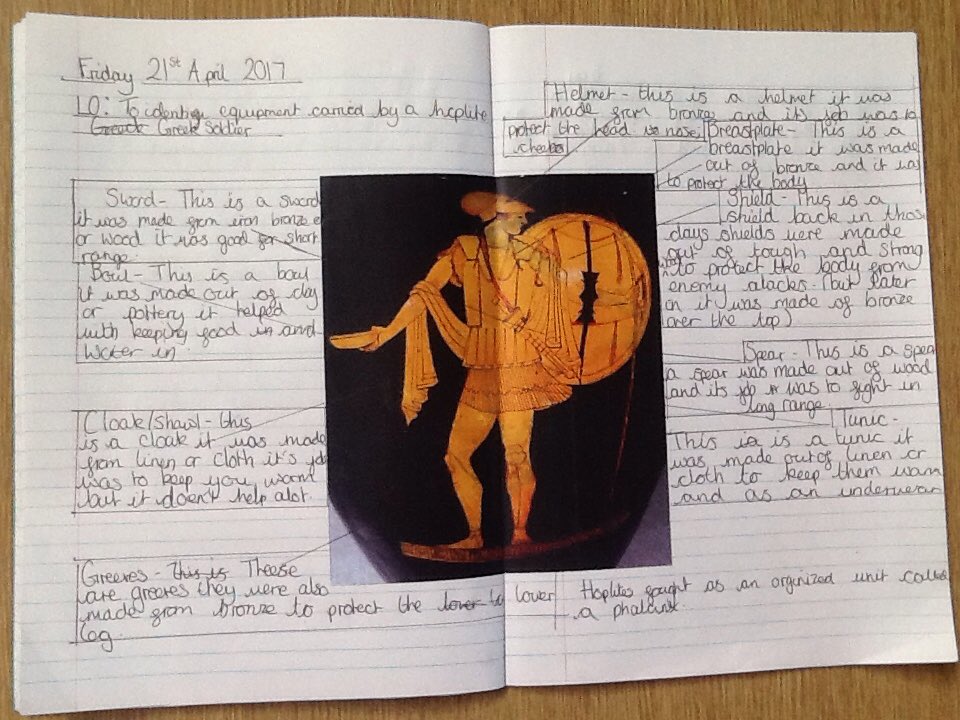 Friday 21st April 2017
LO: To identify equipment carried by a hoplite
Greeck Greek Soldier
Sword - This is a sword
it was made from iron bronze
or wood it was good for short
range.
Bowl - This is a bowl
it was made out of clay
or pottery it helped
with keeping food in and
water in.
Cloak/Shawl - this
is a cloak it was made
from linen or cloth it's job
was to keep you warm
but it doesn't help alot.
Greeves - This is Theese
are greeves they were also
made from bronze to protect the lower lover
leg.
Helmet - this is a helmet it was
made from bronze and its job was to
protect the head nose
cheeks
Breastplate - This is a
breastplate it was made
out of bronze and it was
to protect the body
Shield - This is a
shield back in those
days shields were made
out of tough and strong
to protect the body from
enemy atacks. (but later
on it was made of bronze
over the top)
Spear - This is a spear
a spear was made out of wood
and its job it was to fight in
long range.
Tunic -
This is is a tunic it
was made out of linen or
cloth to keep them warm
and as an underwear
Hoplites fought as an organized unit called
a phalanx.